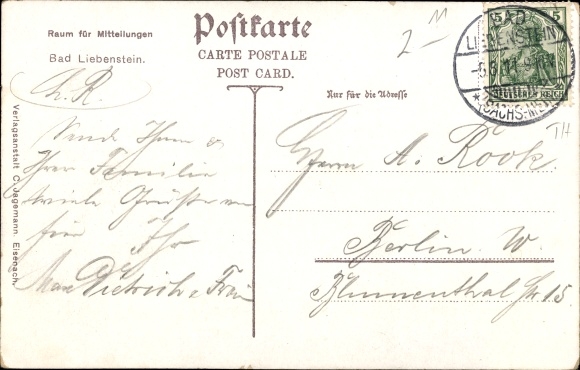 Raum für Mitteilungen
Bad Liebenstein.
Postkarte
CARTE POSTALE
POST CARD.
Nur für die Adresse
2 –
BAD
LIEBENSTEIN
(SACHS. M.)
5 5
DEUTSCHES REICH
TH
L. R.
Ihnen &
Ihrer Familie
viele Grüße
Ihr
Max Dietrich & Frau
Herrn A. Rook.
Berlin. W.
Blumenthal Str. 15
Verlagsanstalt C. Jagemann, Eisenach.